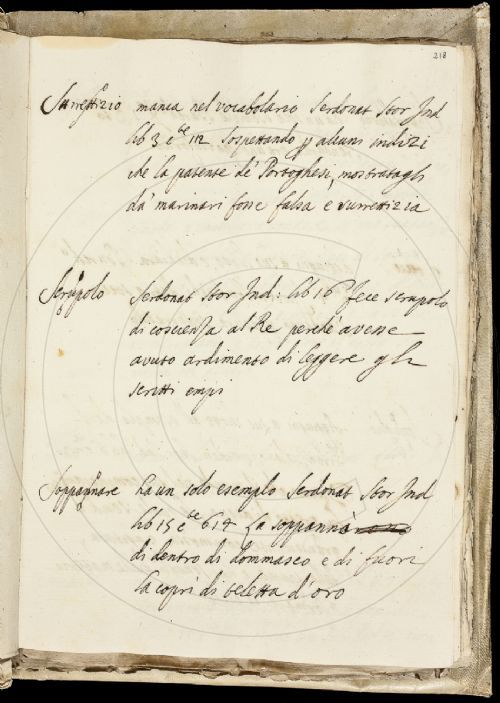 218
Surrettizio manca nel vocabolario Serdonat Stor Ind
lib 3 cte 112 Sospettando p alcuni indizi
che la patente de' Portoghesi, mostratagli
da' marinari fosse falsa e surrettizia
Scrupolo Serdonat Stor Ind: lib 16 Fece scrupolo
di coscienza al Re perchè avesse
avuto ardimento di leggere gli
scritti empi
Soppannare ha un solo esempio Serdonat Stor Ind
lib 15 cte 617 La soppannò
di dentro di dommasco e di fuori
la coprì di teletta d'oro